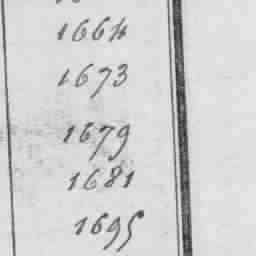 1664
1673
1679
1681
1695